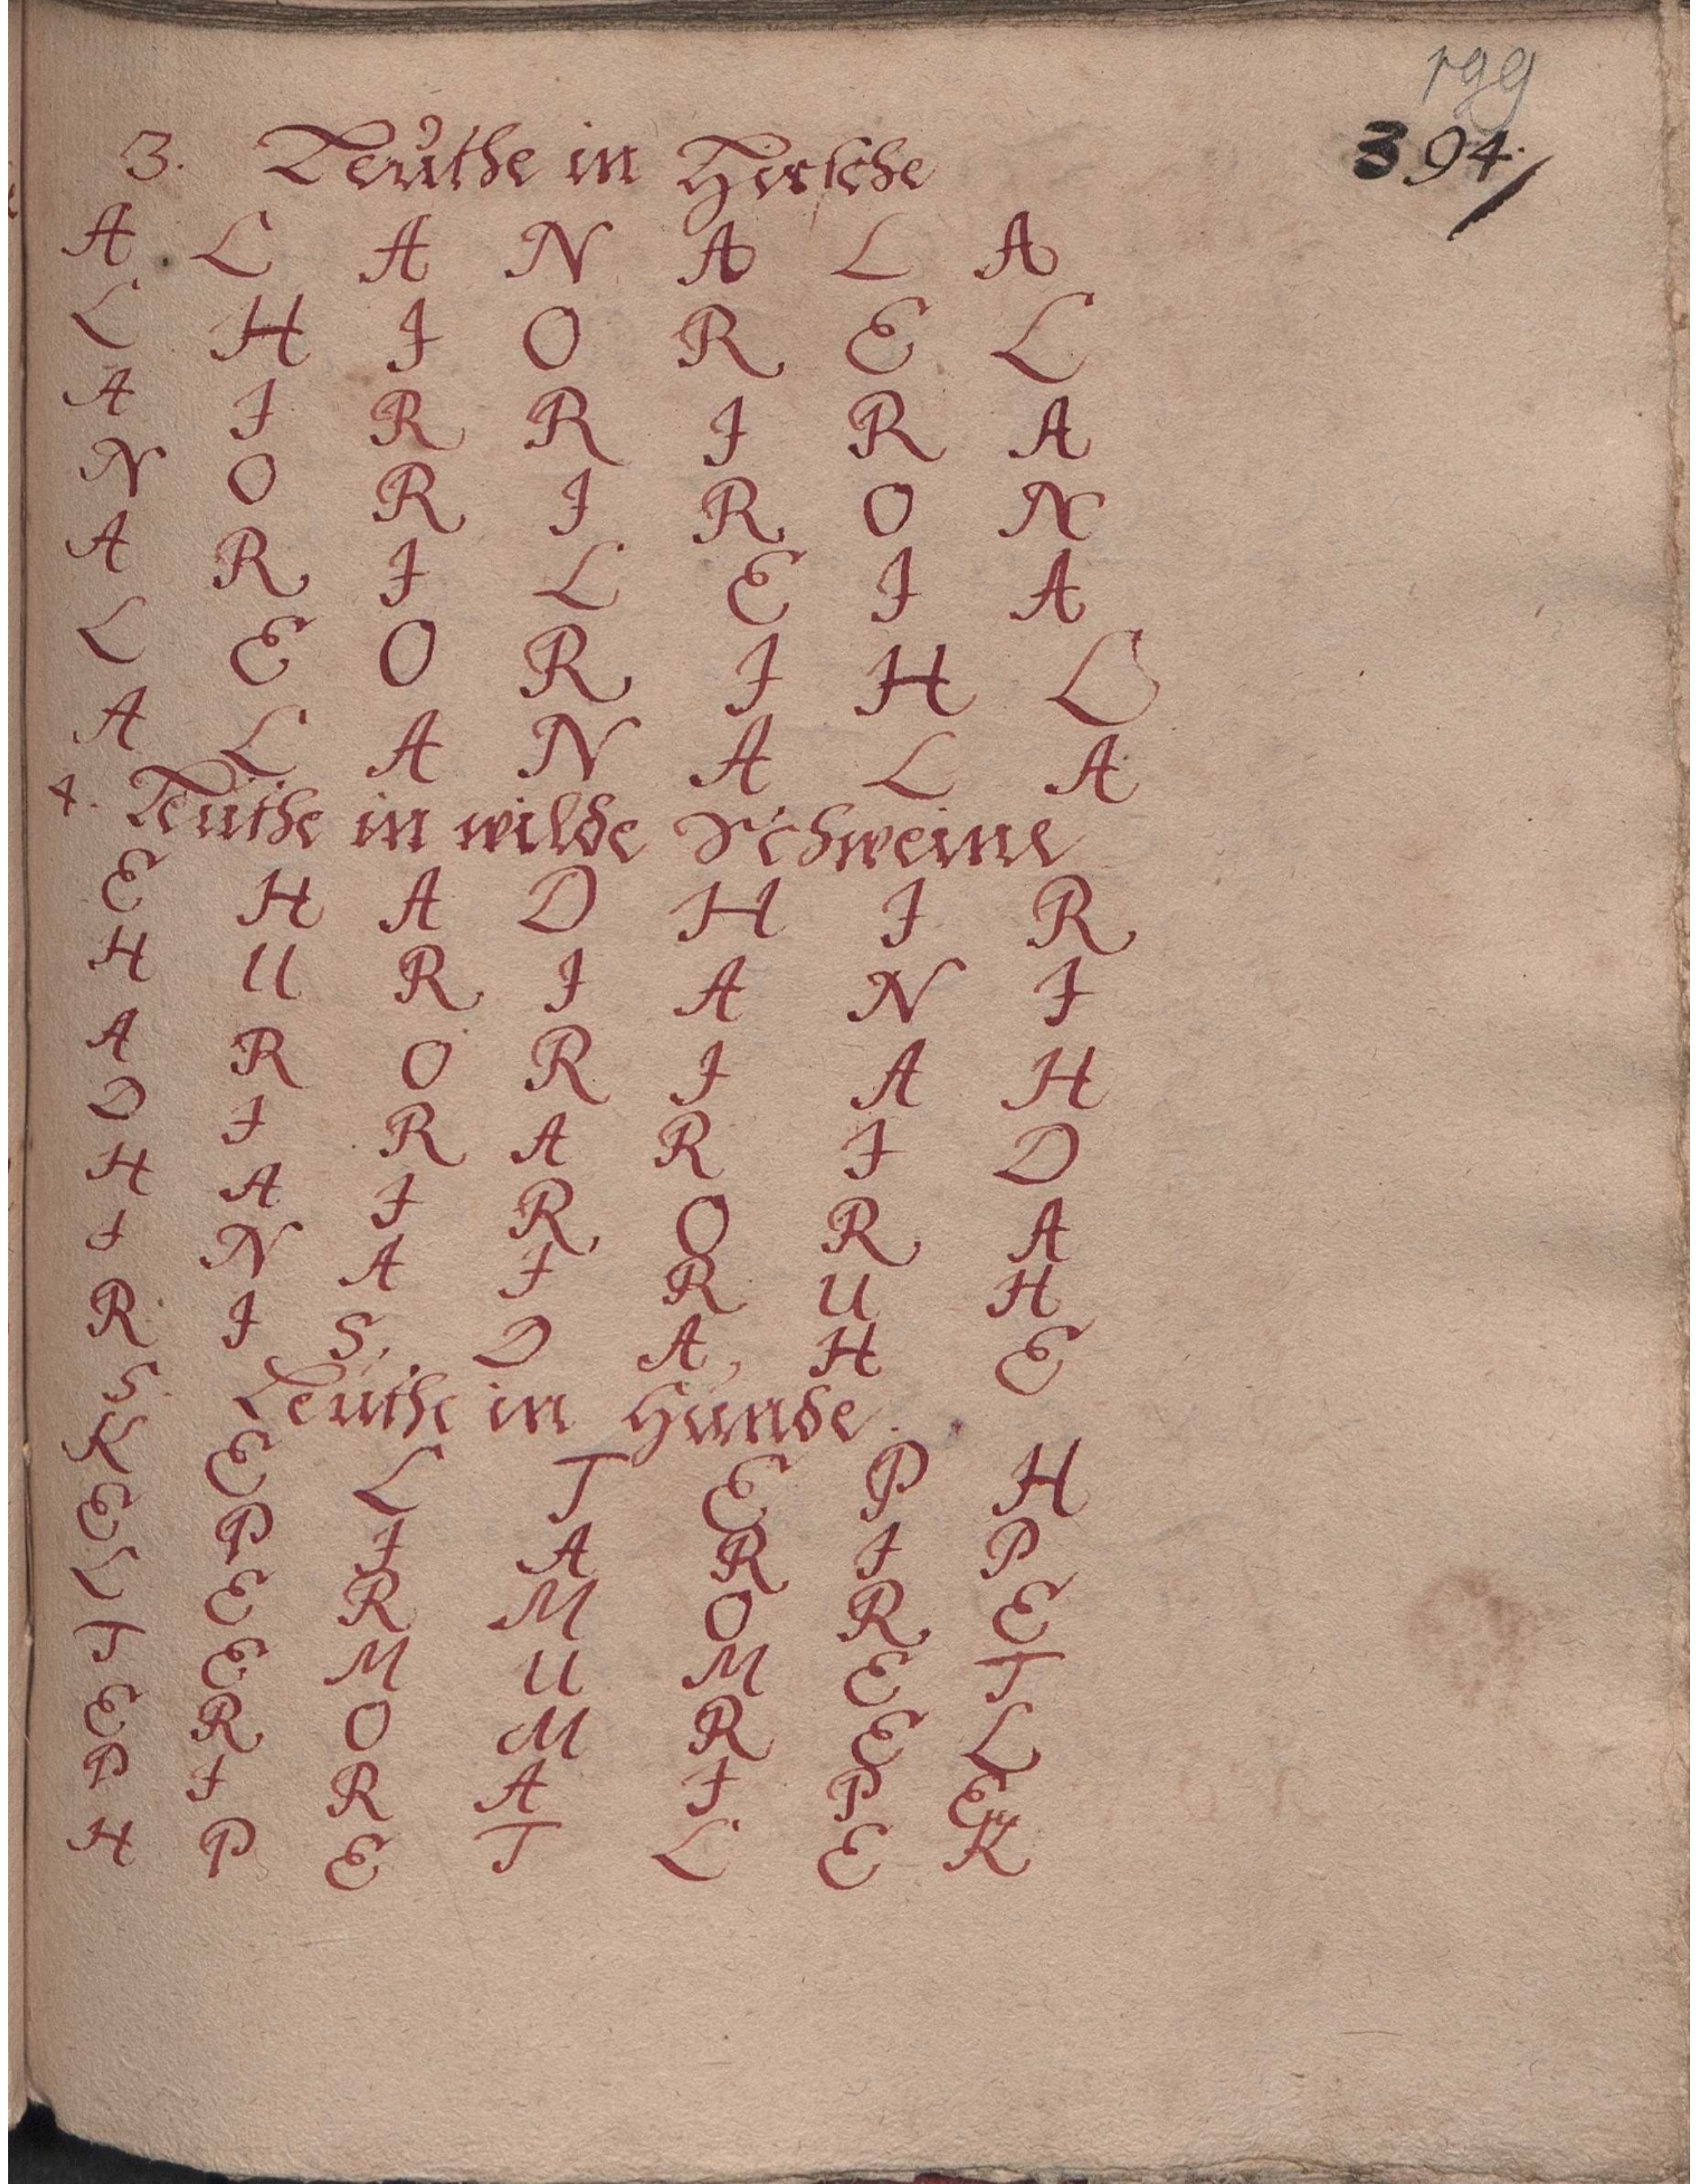 199
394.
3. Leüthe in Hirsche
A L A N A L A
L H I O R E L
A I R R I R A
N O R I R O N
A R I L E I A
L E O R I H L
A L A N A L A
4. Leuthe in wilde Schweine
E H A D H I R
H U R I A N I
A R O R I A H
D I R A R I D
H A I R O R A
I N A I R U H
R I S, D A, H E
5. Leuthe in Hunde.
K E L T E P H
E P I A R I P
L E R M O R E
T E M U M E T
E R O M R E L
P I R A I P E
H P E T L E K